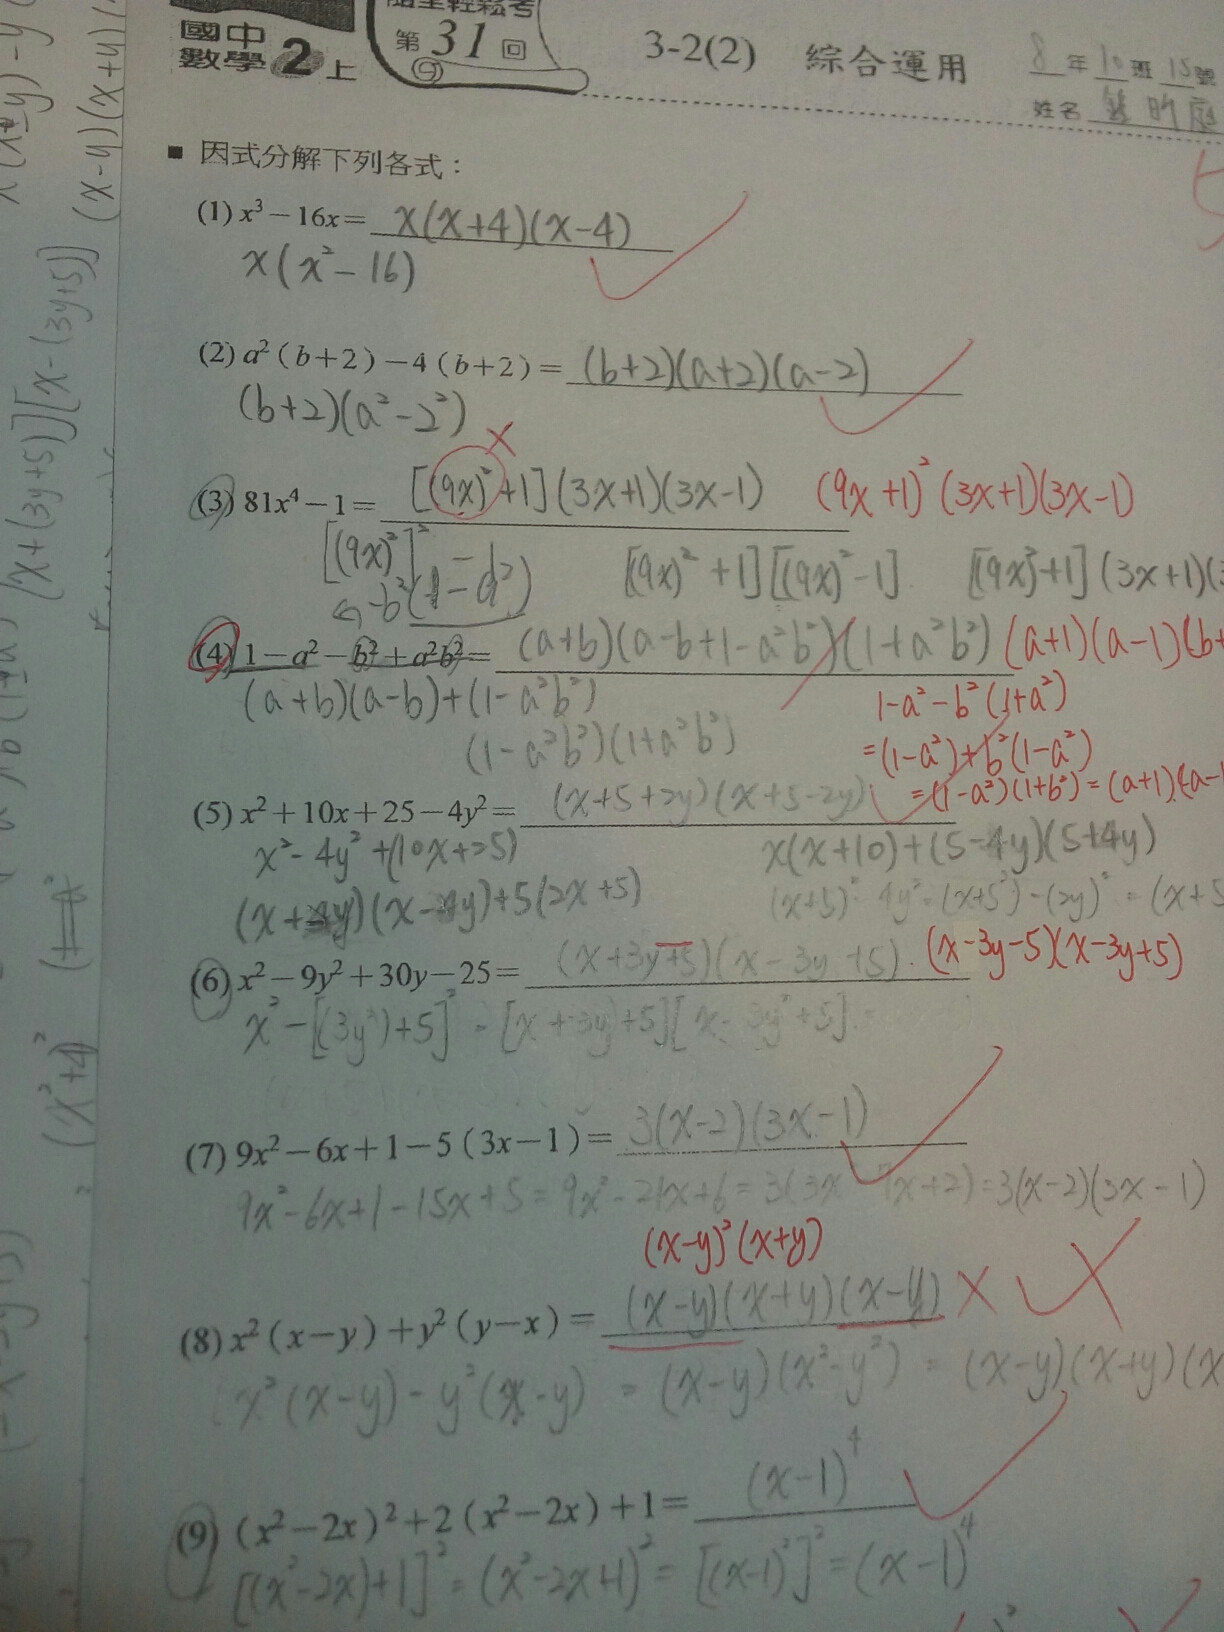 國中
數學2上
第31回
3-2(2) 綜合運用
8年10班15號
姓名
■ 因式分解下列各式：
(1) x³－16x＝ x(x+4)(x-4)
x(x²-16)
(2) a²（b＋2）－4（b＋2）＝ (b+2)(a+2)(a-2)
(b+2)(a²-2²)
(3) 81x⁴－1＝ [(9x)²+1](3x+1)(3x-1) (9x+1)²(3x+1)(3x-1)
[(9x)²]²-1 [(9x)²+1][(9x)²-1] [(9x)²+1](3x+1)(3
-b²(1-a²)
(4) 1－a²－b²＋a²b²＝ (a+b)(a-b+1-a²b²)(1+a²b²) (a+1)(a-1)(b+
(a+b)(a-b)+(1-a²b²) 1-a²-b²(1+a²)
(1-a²b²)(1+a²b²) =(1-a²)+b²(1-a²)
=(1-a²)(1+b²)=(a+1)(a-1
(5) x²＋10x＋25－4y²＝ (x+5+2y)(x+5-2y)
x²-4y²+(10x+25) x(x+10)+(5-4y)(5+4y)
(x+4y)(x-4y)+5(2x+5) (x+5)²-4y²=(x+5)²-(2y)²=(x+5
(6) x²－9y²＋30y－25＝ (x+3y+5)(x-3y+5). (x-3y-5)(x-3y+5)
x²-[(3y²)+5]²=[x+3y+5][x-3y²+5]=
(7) 9x²－6x＋1－5（3x－1）＝ 3(x-2)(3x-1)
9x²-6x+1-15x+5=9x²-21x+6=3(3x²-7x+2)=3(x-2)(3x-1)
(x-y)²(x+y)
(8) x²（x－y）＋y²（y－x）＝ (x-y)(x+y)(x-y)
x²(x-y)-y²(x-y) = (x-y)(x²-y²) = (x-y)(x+y)(x
(9)（x²－2x）²＋2（x²－2x）＋1＝ (x-1)⁴
[(x²-2x)+1]²=(x²-2x+1)²=[(x-1)²]²=(x-1)⁴
(x-y)(x+y)
[x+(3y+5)][x-(3y+5)]
(x²+4)²